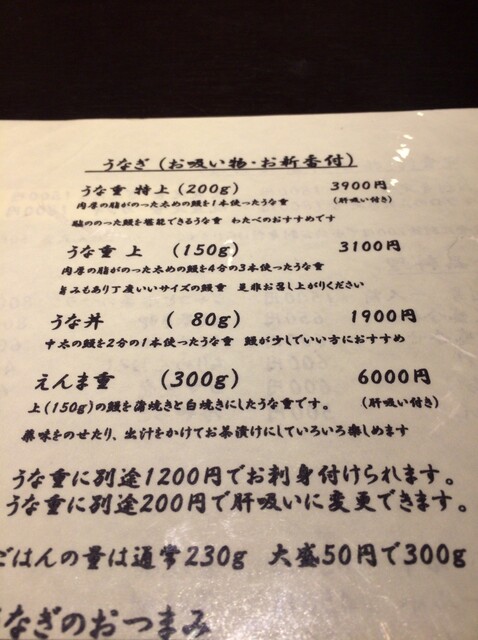 うなぎ(お吸い物・お新香付)
うな重 特上(200g) 3900円
肉厚の脂がのった太めの鰻を1本使ったうな重 (肝吸い付き)
脂ののった鰻を堪能できるうな重 わたべのおすすめです
うな重 上 (150g) 3100円
肉厚の脂がのった太めの鰻を4分の3本使ったうな重
旨みもあり丁度いいサイズの鰻重 是非お召し上がりください
うな丼 (80g) 1900円
中太の鰻を2分の1本使ったうな重 鰻が少しでいい方におすすめ
えんま重 (300g) 6000円
上(150g)の鰻を蒲焼きと白焼きにしたうな重です。 (肝吸い付き)
薬味をのせたり、出汁をかけてお茶漬けにしていろいろ楽しめます
うな重に別途1200円でお刺身付けられます。
うな重に別途200円で肝吸いに変更できます。
ごはんの量は通常230g 大盛50円で300g
うなぎのおつまみ